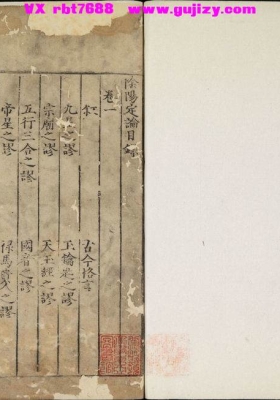 VX rbt7688  www.gujizy.com
陰陽定論目錄
卷一
古今格言
九星之謬
玉鑰匙之謬
宗廟之謬
天王經之謬
五行三合之謬
國音之謬
帝星之謬
禄馬貴人之謬